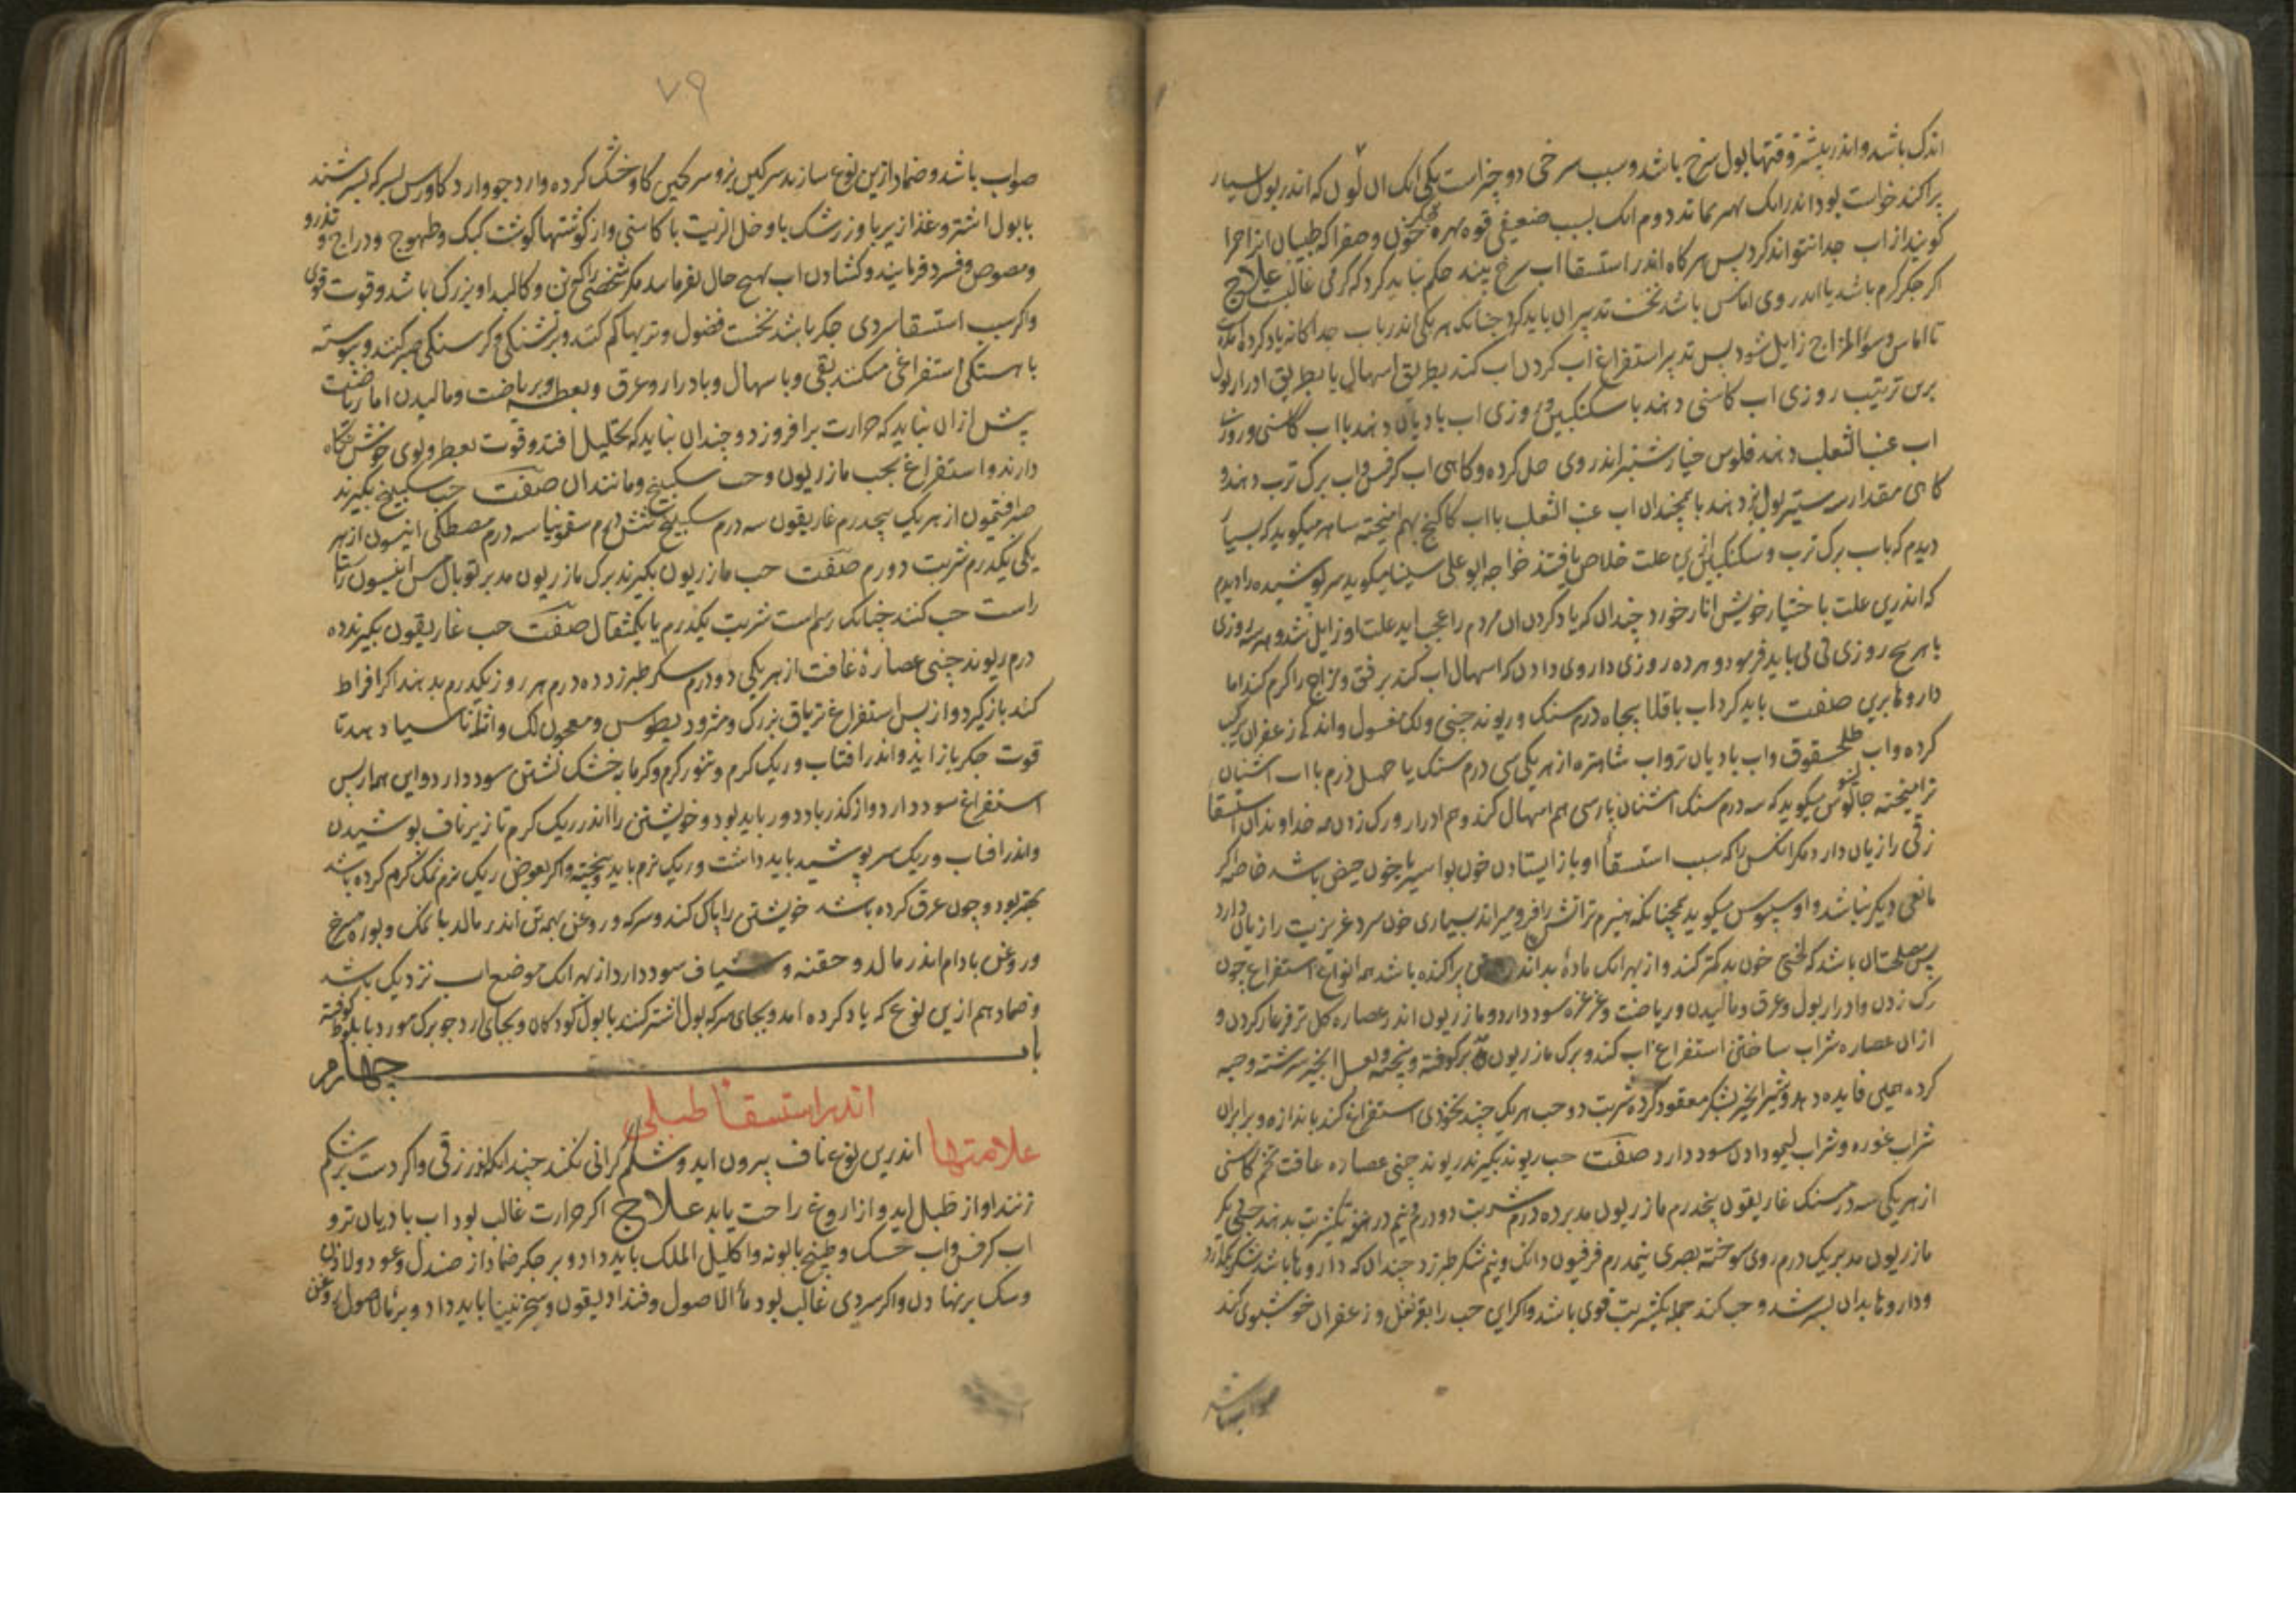 اندک باشد و اندر بیشتر وقتها بول سرخ باشد و سبب سرخی دو چیز است یکی انک ان لون که اندر بول بسیار
براکند خواست بود اندر اندک بهم بماند دوم انک بسبب ضعیفی قوه ممیزه جگر خون و صفرا که طبیبان انرا مرا
کویند از اب جدا نتواند کرد بس هر کاه اندر استسقا اب سرخ بیند حکم نباید کرد که کرمی غالبست علاج
اکر جکر کرم باشد یا اندر وی اماس باشد نخست تدبیر ان باید کرد جنانک هر یکی اندر باب جداکانه یاد کرده امد
تا اماس و سوٴ المزاج زایل شود بس تدبیر استفراغ اب کردن اب کند بطریق اسهال یا بطریق ادرار بول
برین ترتیب روزی اب کاسنی دهند با سکنکبین و روزی اب بادیان دهند با اب کاسنی و روزی
اب عنب الثعلب دهند فلوس خیارشنبر اندر وی حل کرده و کاهی اب کرفس و اب برک ترب دهند و
کاهی مقدار سه ستیر بول بز دهند با همجندان اب عنب الثعلب با اب کاکنج بهم امیخته ساهر میکوید که بسیار
دیدم که باب برک ترب و سکنکبین ازین علت خلاص یافتند خواجه ابو علی سینا میکوید سر پوشیده را دیدم
که اندرین علت باختیار خویش انار خورد چندان که یاد کردن ان مردم را عجب اید علت او زایل شد و هر سه روزی
یا هر پنج روزی قی باید فرمود و هر ده روزی داروی دادن که اسهال اب کند برفق و مزاج را کرم نکند اما
داروها برین صفت باید کرد اب باقلا پنجاه درم سنک و ریوند چینی و لک مغسول و اندکی زعفران ترکیب
کرده و اب و اب بادیان تر و اب شاهتره از هر یکی سی درم سنک یا چهل درم با اب اشنان
تر امیخته جالینوس میکوید که سه درم سنک اشنان پارسی هم اسهال کند و هم ادرار و رک زدن همه خداوندان استسقا
زقی را زیان دارد مکر انکس را که سبب استسقا او باز ایستادن خون بواسیر یا خون حیض باشد خاصه اکر
مانعی دیکر نباشد و اوسیوس میکوید همچنانکه هیزم تر اتش را فرو میراند بسیاری خون سرد غریزیت را زیان دارد
پس مصلحت ان باشد که لختی خون بد کمتر کند و از بهر انک مادهٔ بد اندر براکنده باشد همه انواع استفراغ چون
رک زدن و ادرار بول و عرق و مالیدن و ریاضت و غرغره سود دارد و مازریون اندر عصاره کل تر فرغار کردن و
ازان عصاره شراب ساختن استفراغ اب کند و برک مازریون کوفته و پیخته و بعسل انجیر سرشته و حب
کرده همین فایده دهد و شیر انجیر بشکر معقود کرده شربت دو حب هر یک چند نخودی استفراغ کند باندازه و برابر ان
شراب غوره و شراب لیمو دادن سود دارد صفت حب ریوند بکیرند ریوند چینی عصاره غافت تخم کاسنی
از هر یکی سه درمسنک غاریقون پنجدرم مازریون مدبر ده درم شربت دو درم و نیم در هفته یکشربت بدهند حبی دیکر
مازریون مدبر یک درم روی سوخته بصری نیمدرم فرفیون دانک و نیم شکر طبرزد چندان که داروها باشد شکر بکدازد
و داروها بدان بسرشد و حب کند جمله یکشربت قوی باشد و اکر این حب را بقرنفل و زعفران خوشبوی کند
صواب باشد
۷۹
صواب باشد و ضماد ازین نوع سازند سرکین بز و سرکین کاو خشک کرده و ارد جو و ارد کاورس بسرکه بسرشند
با بول اشتر و غذا زیربا و زرشک با و خل الزیت با کاسنی و از کوشتها کوشت کبک و طیهوج و دراج و تذرو
و مصوص و فسرد فرمایند و کشادن اب بهیچ حال نفرمایند مکر شخصی را که تن و کالبد او بزرک باشد و قوت قوی
و اکر سبب استسقا سردی جکر باشد نخست فضول و تریها کم کنند و بر تشنکی و کرسنکی صبر کنند و پیوسته
باهستکی استفراغی میکنند بقی و با سهال و بادرار و عرق و بعطسه و بریاضت و مالیدن اما ریاضت
پیش ازان نباید که حرارت برافروزد و چندان نباید که بتحلیل افتد و قوت بعطر و بوی خوش نکاه
دارند و استفراغ بحب مازریون و حب سکبینج و مانند ان صفت حب سکبینج بکیرند
صبر افتیمون از هر یک پنجدرم غاریقون سه درم سکبینج شش درم سقمونیا سه درم مصطکی انیسون از هر
یکی یکدرم شربت دو درم صفت حب مازریون بکیرند برک مازریون مدبر توبال مس انیسون راستا
راست حب کنند چنانک رسم است شربت یکدرم یا یکمثقال صفت حب غاریقون بکیرند ده
درم ریوند چینی عصارهٔ غافت از هر یکی دو درم سکر طبرزد ده درم هر روز یکدرم بدهند اکر افراط
کند باز کیرد و از پس استفراغ تریاق بزرک و مثرودیطوس و معجون لک و اثاناسیا دهند تا
قوت جکر باز اید و اندر افتاب و ریک کرم و تنور کرم و کرمابه خشک نشستن سود دارد و این همه از پس
استفراغ سود دارد و از کذر باد دور باید بود و خویشتن را اندر ریک کرم تا زیر ناف پوشیدن
و اندر افتاب و ریک سر پوشید باید داشت و ریک نرم باید و پیخته و اکر بعوض ریک نرم نمک کرم کرده باشد
بهتر بود و چون عرق کرده باشد خویشتن را پاک کند و سرکه و روغن بهمه تن اندر مالد با نمک و بوره سرخ
و روغن بادام اندر مالد و حقنه و شیاف سود دارد از بهر انک موضع اب نزدیک باشد
و ضماد هم ازین نوع که یاد کرده امد و بجای سرکه بول اشتر کنند یا بول کودکان و بجای ارد جو برک مورد با بلوط کوفته
باب چهارم
اندر استسقا طبلی
علامتها اندرین نوع ناف بیرون اید و شکم کرانی نکند چندانکه اندر زقی و اکر دست بر شکم
زنند اواز طبل اید و از اروغ راحت یابد علاج اکر حرارت غالب بود اب بادیان تر و
اب کرفس و اب خسک و طبیخ بابونه و اکلیل الملک باید داد و بر جکر ضماد از صندل و عود و لادن
و سک برنهادن و اکر سردی غالب بود ماٴ الاصول و قنداد یقون و سجزنیا باید داد و بر ماٴ الاصول روغن